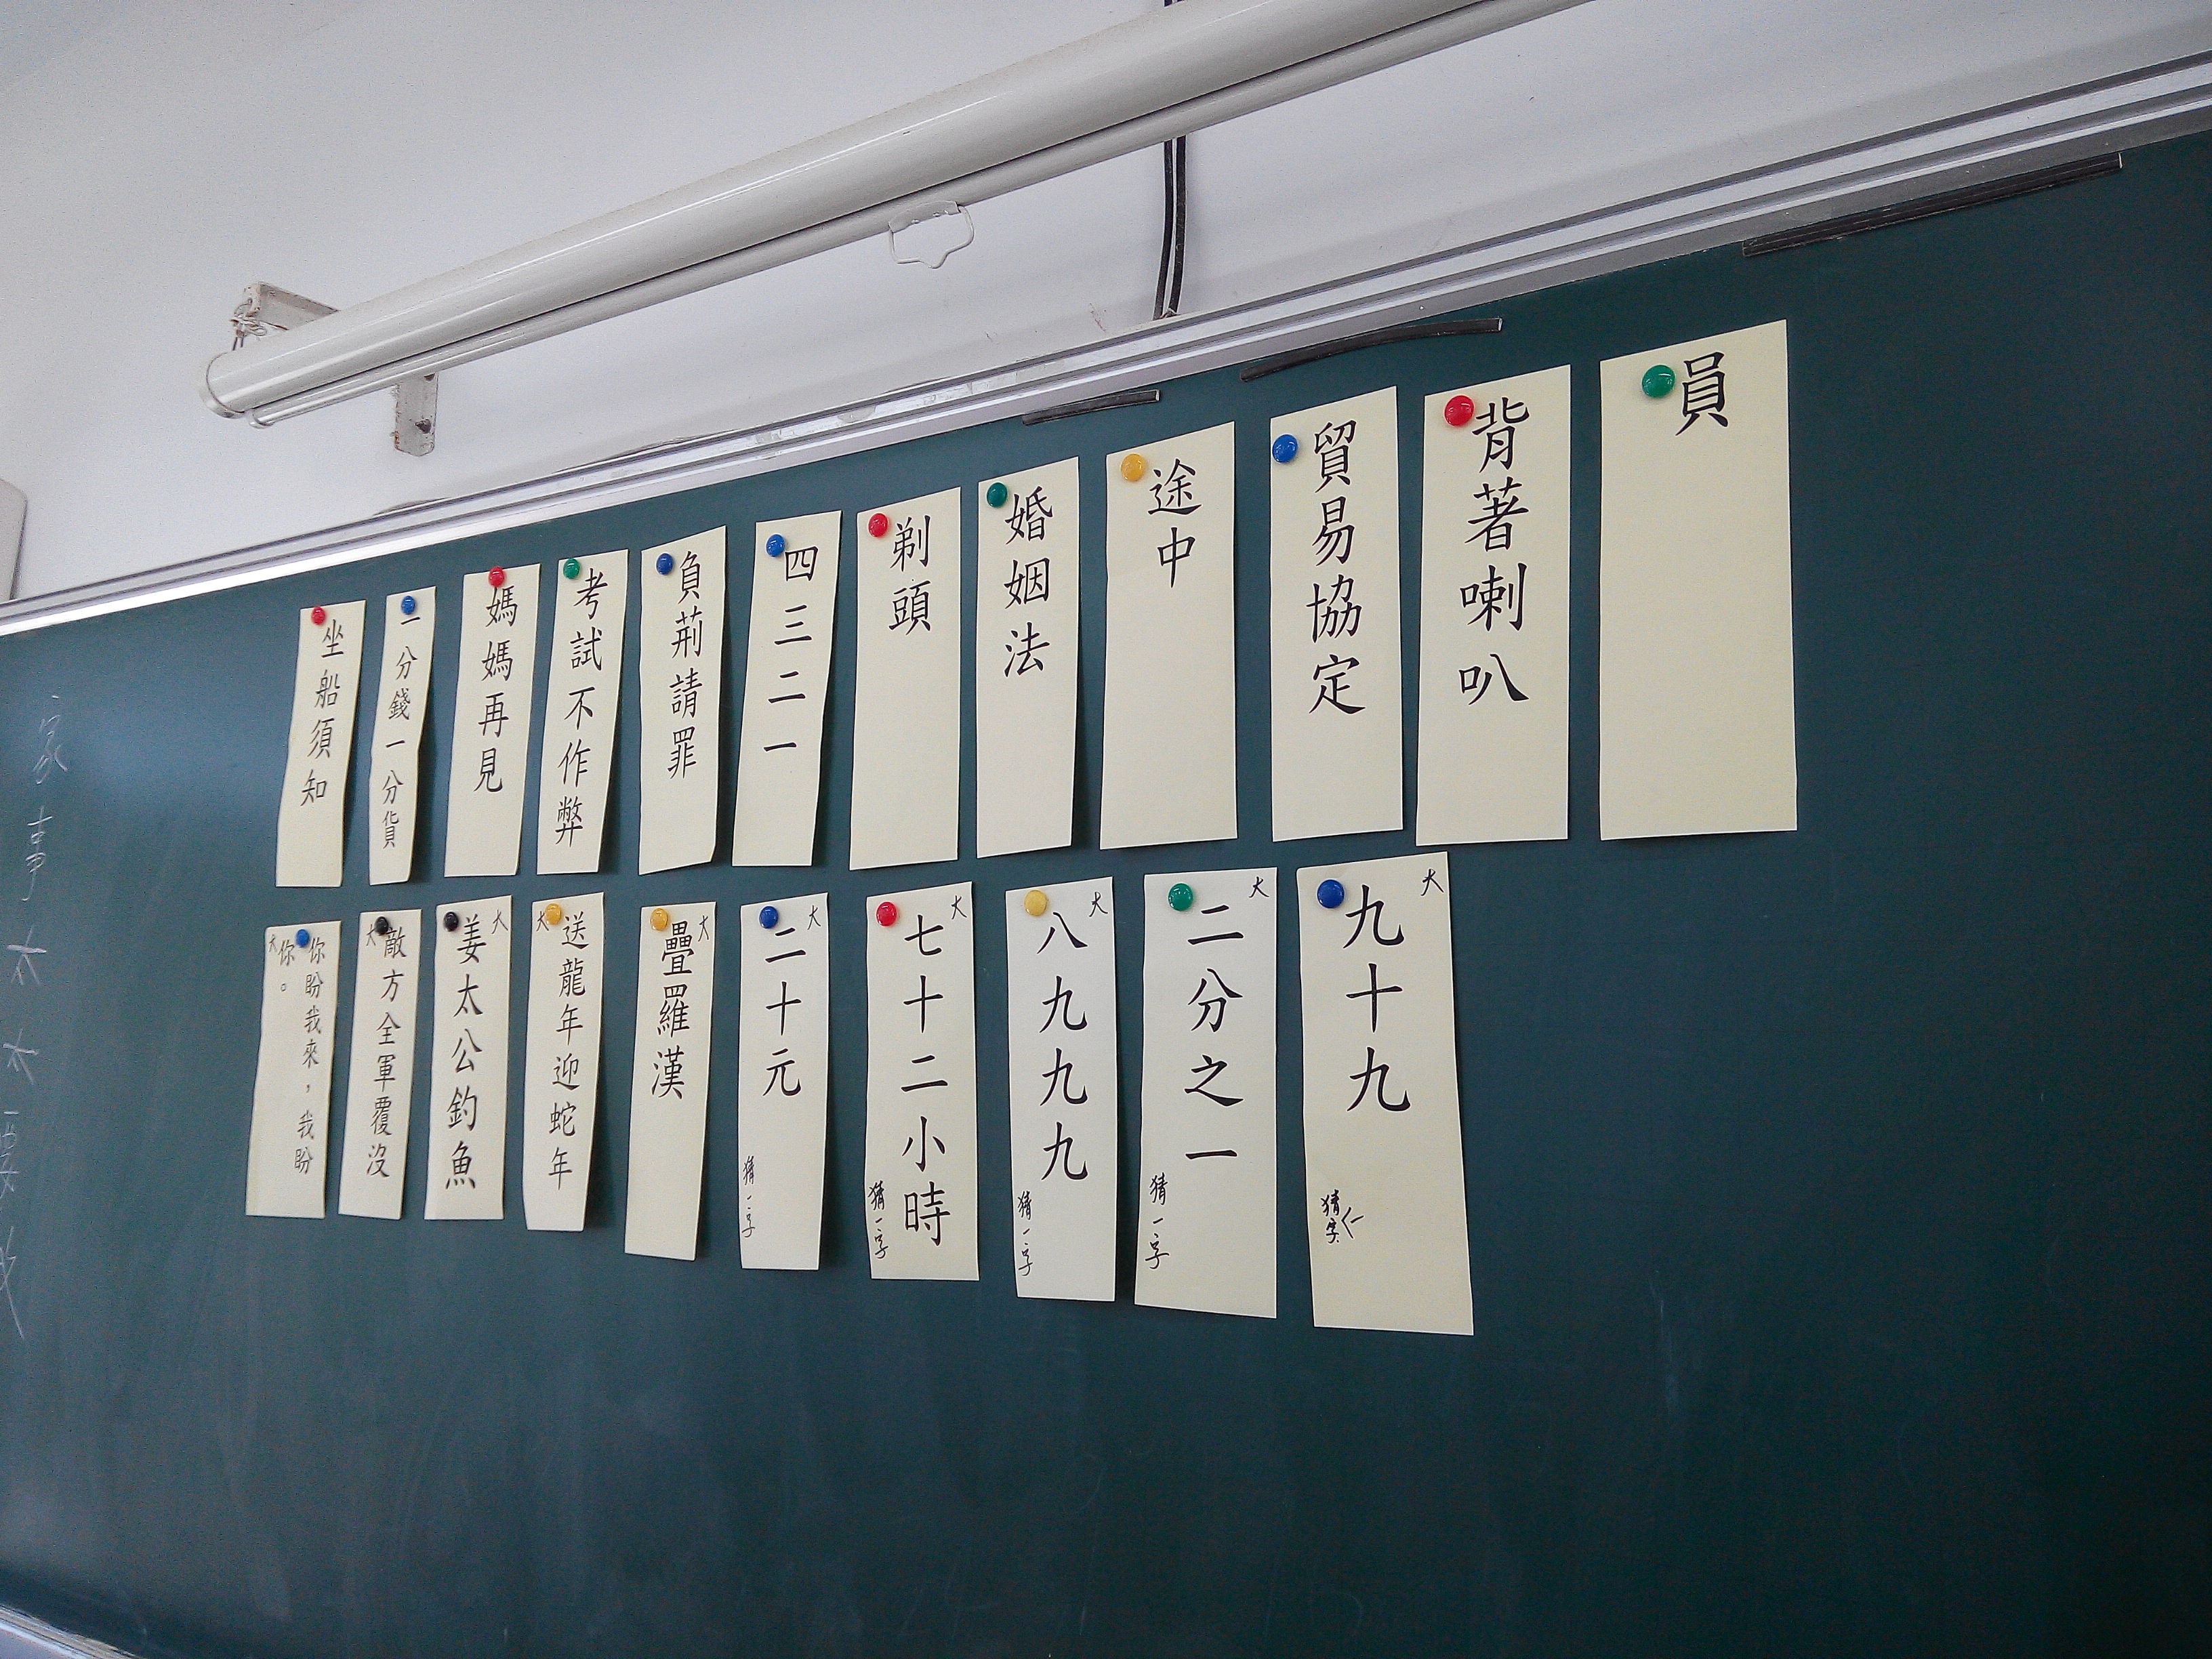 員
背著喇叭
貿易協定
途中
婚姻法
剃頭
四三二一
負荊請罪
考試不作弊
媽媽再見
一分錢一分貨
坐船須知
大
九十九
猜一字
大
二分之一
猜一字
大
八九九九
猜一字
大
七十二小時
猜一字
大
二十元
猜一字
大
疊羅漢
大
送龍年迎蛇年
大
姜太公釣魚
大
敵方全軍覆沒
大
你盼我來，我盼
你。